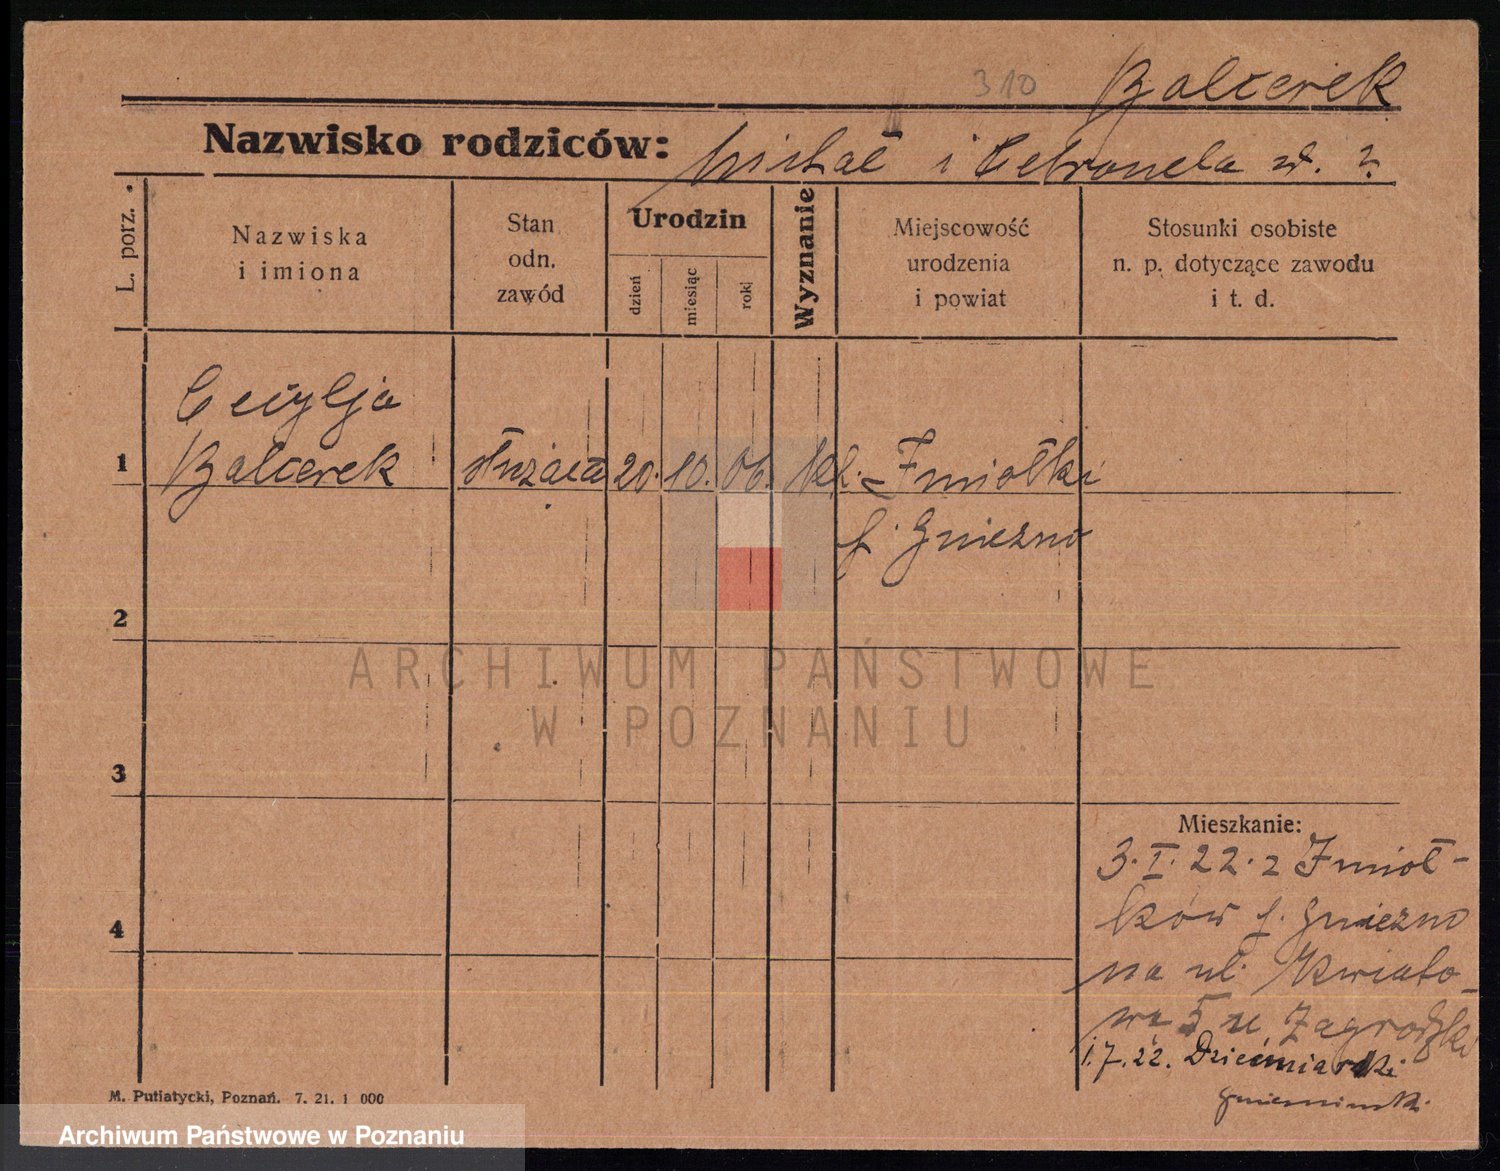 310 Balcerek
Nazwisko rodziców: Michał i Petronela z d. ?
L. porz.
Nazwiska
i imiona
Stan
odn.
zawód
Urodzin
dzień
miesiąc
rok
Wyznanie
Miejscowość
urodzenia
i powiat
Stosunki osobiste
n. p. dotyczące zawodu
i t. d.
Cecylja
1 Balcerek służąca 20. 10. 06. kt. Żmiołki
p. Gniezno
2
3
4
ARCHIWUM PAŃSTWOWE
W POZNANIU
Mieszkanie:
3. I. 22. z Żmioł-
ków p. Gniezno
na ul. Kwiato-
wa 5 u
1.7.22. Dziećmiarki
M. Putiatycki, Poznań. 7. 21. 1 000
Archiwum Państwowe w Poznaniu